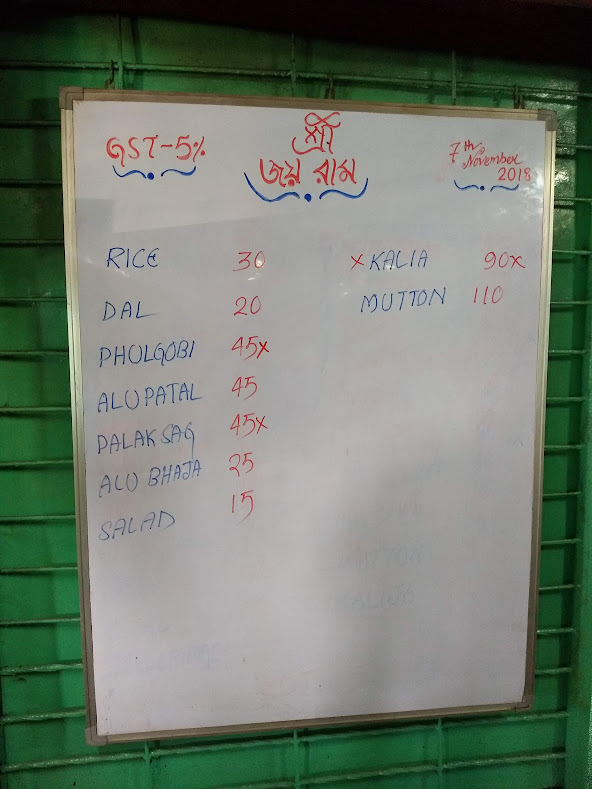 GST-5%
শ্রী
জয় রাম
7th November
2018
RICE 30
DAL 20
PHULGOBI 45x
ALU PATAL 45
PALAK SAG 45x
ALU BHAJA 25
SALAD 15
x KALIA 90x
MUTTON 110
MUTTON